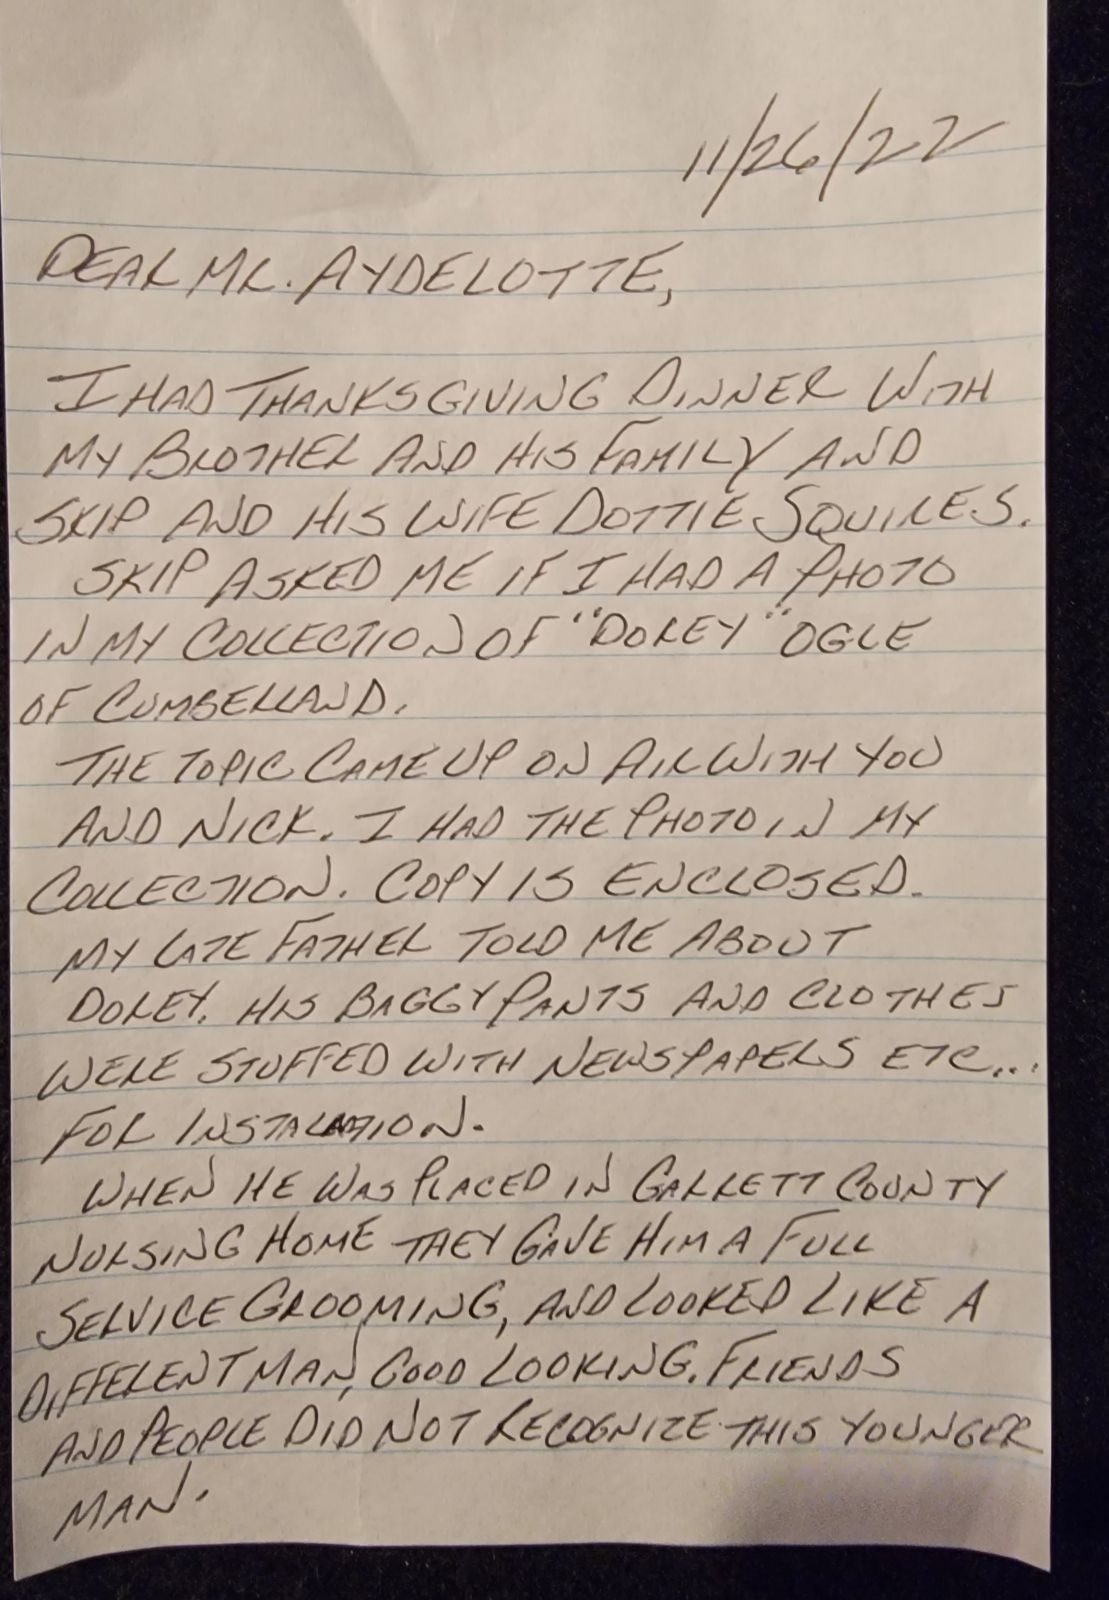 11/26/22
DEAR MR. AYDELOTTE,
I HAD THANKSGIVING DINNER WITH
MY BROTHER AND HIS FAMILY AND
SKIP AND HIS WIFE DOTTIE SQUIRES.
SKIP ASKED ME IF I HAD A PHOTO
IN MY COLLECTION OF "DOREY" OGLE
OF CUMBERLAND.
THE TOPIC CAME UP ON AIR WITH YOU
AND NICK. I HAD THE PHOTO IN MY
COLLECTION. COPY IS ENCLOSED.
MY LATE FATHER TOLD ME ABOUT
DOREY. HIS BAGGY PANTS AND CLOTHES
WERE STUFFED WITH NEWSPAPERS ETC...
FOR INSTALATION.
WHEN HE WAS PLACED IN GARRETT COUNTY
NURSING HOME THEY GAVE HIM A FULL
SERVICE GROOMING, AND LOOKED LIKE A
DIFFERENT MAN, GOOD LOOKING. FRIENDS
AND PEOPLE DID NOT RECOGNIZE THIS YOUNGER
MAN.